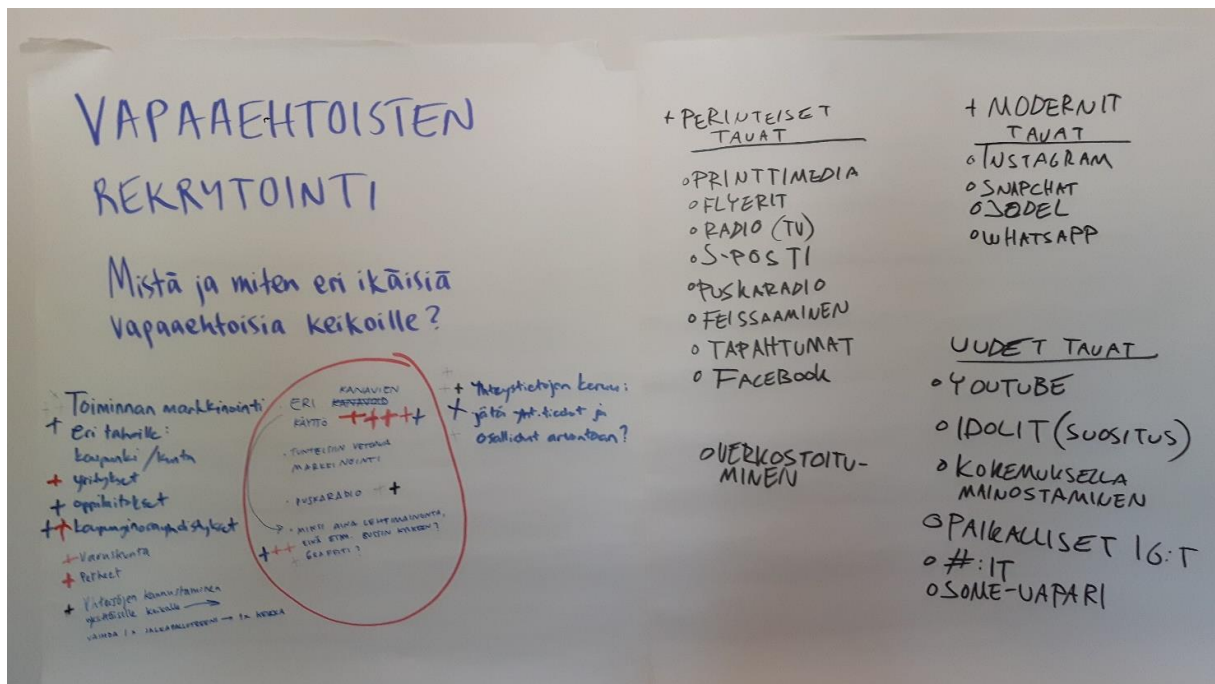 VAPAAEHTOISTEN
REKRYTOINTI
Mistä ja miten eri ikäisiä
vapaaehtoisia keikoille?
Toiminnan markkinointi
+ Eri tahoille:
kaupunki / kunta
+ yritykset
+ oppilaitokset
++ kaupunginosayhdistykset
+ Varuskunta
+ Perheet
+ Yhteisöjen kannustaminen
yksittäisille keikoille →
VAIHDA 1x JALKAPALLOTREENI → 1x KEIKKA
KANAVIEN
ERI KANAVOID
KÄYTTÖ +++++
· TUNTEISIIN VETOAVA
MARKKINOINTI
· PUSKARADIO +
· MIKSI AINA LEHTIMAINONTA,
EIKÄ ESIM. BUSSIN KYLKEEN?
+++ GRAFFITI?
+ Yhteystietojen keruu:
+ jätä yht.tiedot ja
osallistut arvontaan?
+ PERINTEISET
TAVAT
o PRINTTIMEDIA
o FLYERIT
o RADIO (TV)
o S-POSTI
o PUSKARADIO
o FEISSAAMINEN
o TAPAHTUMAT
o FACEBOOK
o VERKOSTOITU-
MINEN
+ MODERNIT
TAVAT
o INSTAGRAM
o SNAPCHAT
o JODEL
o WHATSAPP
UUDET TAVAT
o YOUTUBE
o IDOLIT (SUOSITUS)
o KOKEMUKSELLA
MAINOSTAMINEN
o PAIKALLISET IG:T
o #:IT
o SOME-VAPARI